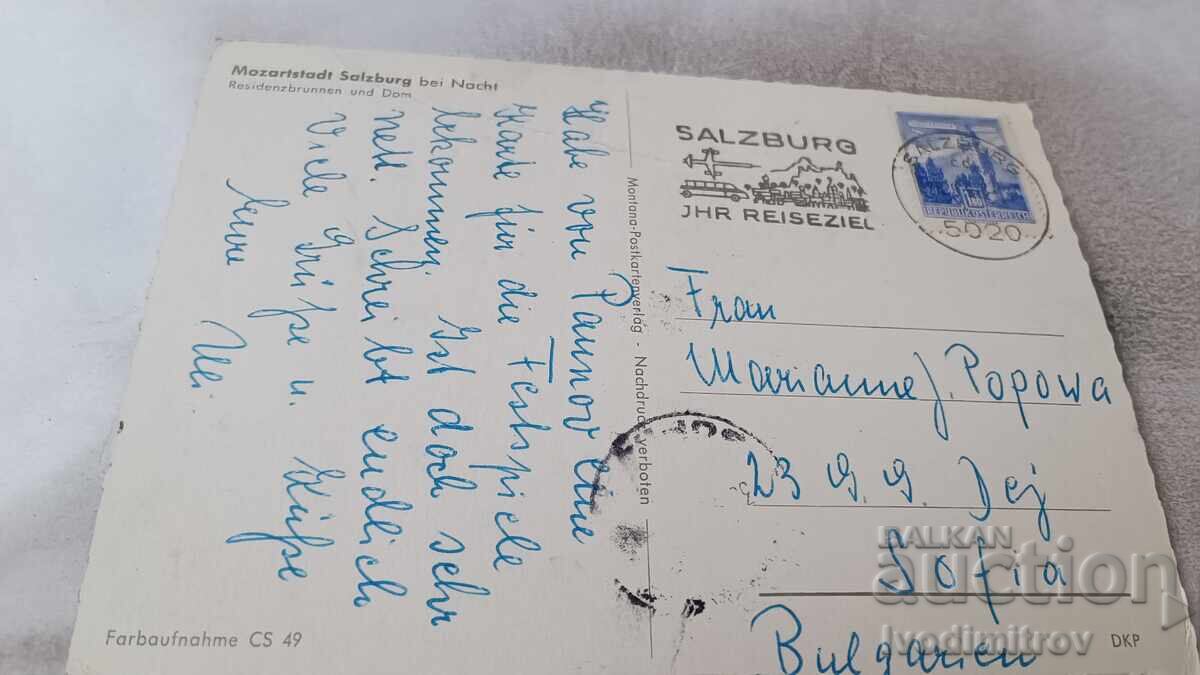 Mozartstadt Salzburg bei Nacht
Residenzbrunnen und Dom
Habe von Pannov eine
Karte für die Festspiele
bekommen. Ist doch sehr
nett. Schreibt endlich
Viele Grüße u. Küße
Eure
Uli
Farbaufnahme CS 49
Montana-Postkartenverlag - Nachdruck verboten
SALZBURG
JHR REISEZIEL
SALZBURG
5020
REPUBLIK ÖSTERREICH
Frau
Marianne J. Popowa
23 G. G. Dej
Sofia
Bulgarien
DKP
BALKAN
auction
Ivodimitrov